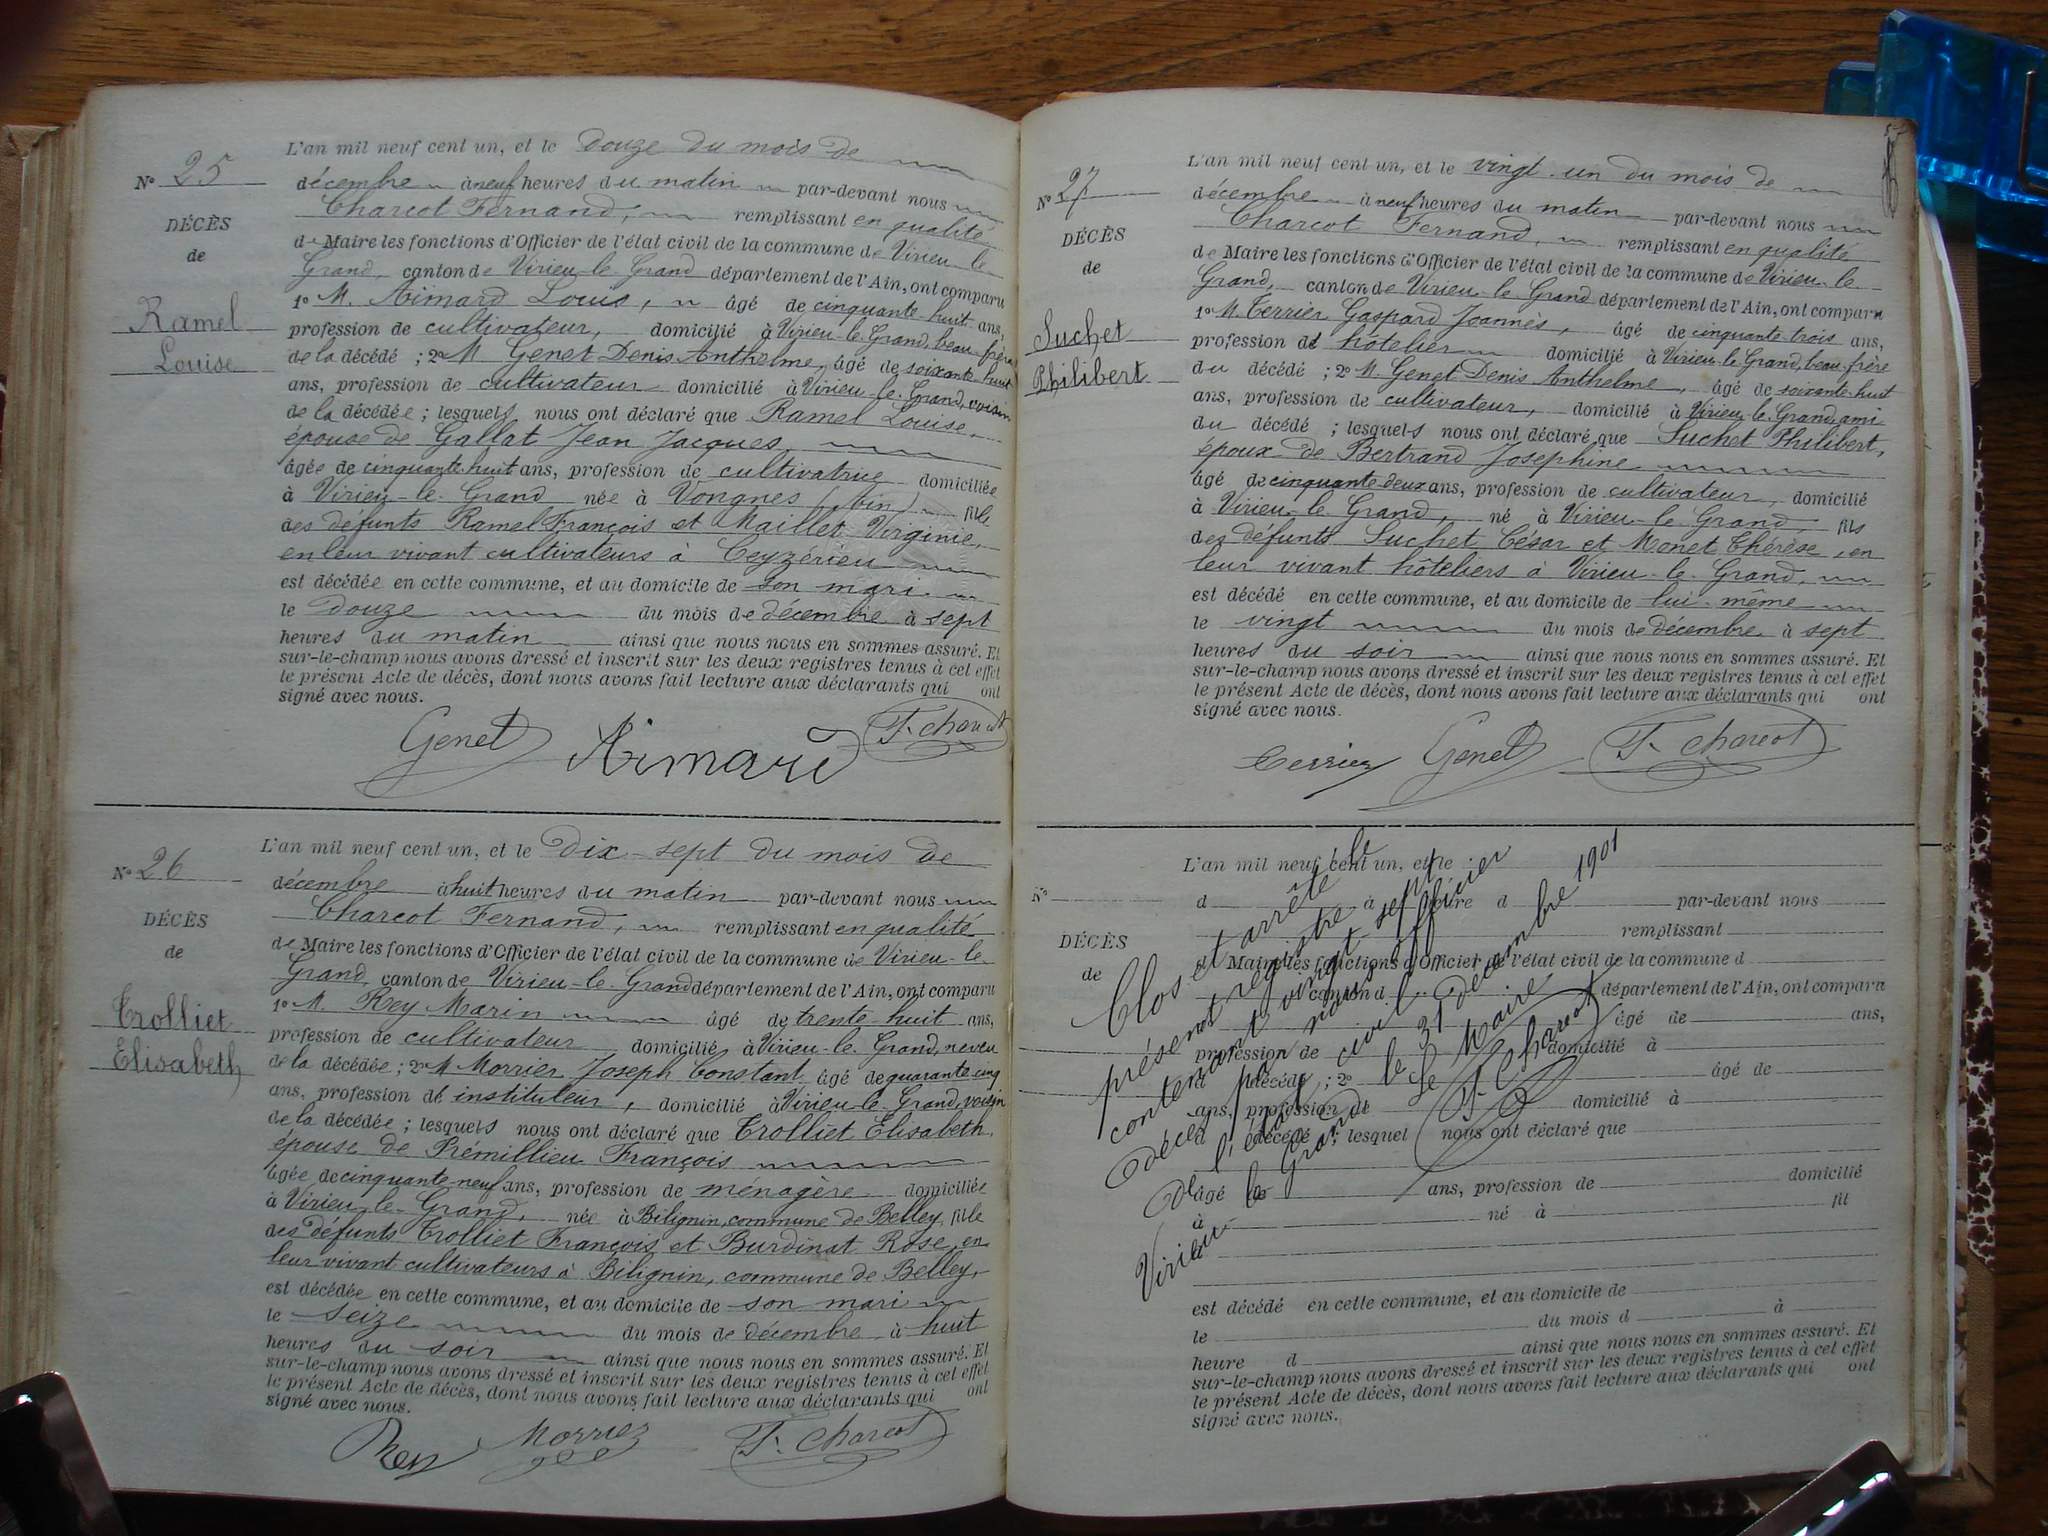 N° 25
DÉCÈS
de
Ramel
Louise
L'an mil neuf cent un, et le douze du mois de
décembre à neuf heures du matin par-devant nous
Charcot Fernand, remplissant en qualité
de Maire les fonctions d'Officier de l'état civil de la commune de Virieu-le
Grand, canton de Virieu-le-Grand département de l'Ain, ont comparu
1° M. Aimard Louis, âgé de cinquante huit ans,
profession de cultivateur, domicilié à Virieu-le-Grand, beau-frère
de la décédé ; 2° M Genet Denis Anthelme, âgé de soixante huit
ans, profession de cultivateur domicilié à Virieu-le-Grand, voisin
de la décédée ; lesquels nous ont déclaré que Ramel Louise,
épouse de Gallat Jean Jacques,
âgée de cinquante huit ans, profession de cultivatrice domiciliée
à Virieu-le-Grand née à Vongnes (Ain) fille
des défunts Ramel François et Maillet Virginie,
en leur vivant cultivateurs à Ceyzérieu
est décédée en cette commune, et au domicile de son mari
le douze du mois de décembre à sept
heures du matin ainsi que nous nous en sommes assuré. Et
sur-le-champ nous avons dressé et inscrit sur les deux registres tenus à cet effet
le présent Acte de décès, dont nous avons fait lecture aux déclarants qui ont
signé avec nous.
Genet Aimard F. Charcot
N° 26
DÉCÈS
de
Trolliet
Elisabeth
L'an mil neuf cent un, et le dix-sept du mois de
décembre à huit heures du matin par-devant nous
Charcot Fernand, remplissant en qualité
de Maire les fonctions d'Officier de l'état civil de la commune de Virieu-le
Grand, canton de Virieu-le-Grand département de l'Ain, ont comparu
1° M. Rey Marin âgé de trente-huit ans,
profession de cultivateur domicilié à Virieu-le-Grand, neveu
de la décédée ; 2° M Morrier Joseph Constant, âgé de quarante cinq
ans, profession de instituteur, domicilié à Virieu-le-Grand, voisin
de la décédée ; lesquels nous ont déclaré que Trolliet Elisabeth,
épouse de Prémillieu François
âgée de cinquante-neuf ans, profession de ménagère domiciliée
à Virieu-le-Grand, née à Bilignin, commune de Belley, fille
des défunts Trolliet François et Burdinat Rose, en
leur vivant cultivateurs à Bilignin, commune de Belley,
est décédée en cette commune, et au domicile de son mari
le seize du mois de décembre à huit
heures du soir ainsi que nous nous en sommes assuré. Et
sur-le-champ nous avons dressé et inscrit sur les deux registres tenus à cet effet
le présent Acte de décès, dont nous avons fait lecture aux déclarants qui ont
signé avec nous.
Rey Morrier F. Charcot
N° 27
DÉCÈS
de
Suchet
Philibert
L'an mil neuf cent un, et le vingt-un du mois de
décembre à neuf heures du matin par-devant nous
Charcot Fernand, remplissant en qualité
de Maire les fonctions d'Officier de l'état civil de la commune de Virieu-le
Grand, canton de Virieu-le-Grand département de l'Ain, ont comparu
1° M. Terrier Gaspard Joannès, âgé de cinquante-trois ans,
profession de hôtelier domicilié à Virieu-le-Grand, beau-frère
du décédé ; 2° M. Genet Denis Anthelme, âgé de soixante-huit
ans, profession de cultivateur, domicilié à Virieu-le-Grand, ami
du décédé ; lesquels nous ont déclaré que Suchet Philibert,
époux de Bertrand Josephine
âgé de cinquante-deux ans, profession de cultivateur, domicilié
à Virieu-le-Grand, né à Virieu-le-Grand, fils
des défunts Suchet César et Monet Thérèse, en
leur vivant hôteliers à Virieu-le-Grand,
est décédé en cette commune, et au domicile de lui-même
le vingt du mois de décembre à sept
heures du soir ainsi que nous nous en sommes assuré. Et
sur-le-champ nous avons dressé et inscrit sur les deux registres tenus à cet effet
le présent Acte de décès, dont nous avons fait lecture aux déclarants qui ont
signé avec nous.
Terrier Genet F. Charcot
N°
DÉCÈS
de
L'an mil neuf cent un, et le
d à heure d par-devant nous
remplissant
d Maire les fonctions d'Officier de l'état civil de la commune d
canton d département de l'Ain, ont comparu
âgé de ans,
profession de domicilié à
d décédé ; 2° âgé de
ans, profession de domicilié à
d décédé ; lesquel nous ont déclaré que
âgé de ans, profession de domicilié
à né à fil
est décédé en cette commune, et au domicile de
le du mois d à
heure d ainsi que nous nous en sommes assuré. Et
sur-le-champ nous avons dressé et inscrit sur les deux registres tenus à cet effet
le présent Acte de décès, dont nous avons fait lecture aux déclarants qui ont
signé avec nous.
Clos et arrêté le
présent registre
contenant vingt-sept
décès par nous officier
de l'état civil
Virieu le Grand le 31 décembre 1901
Le Maire
F. Charcot